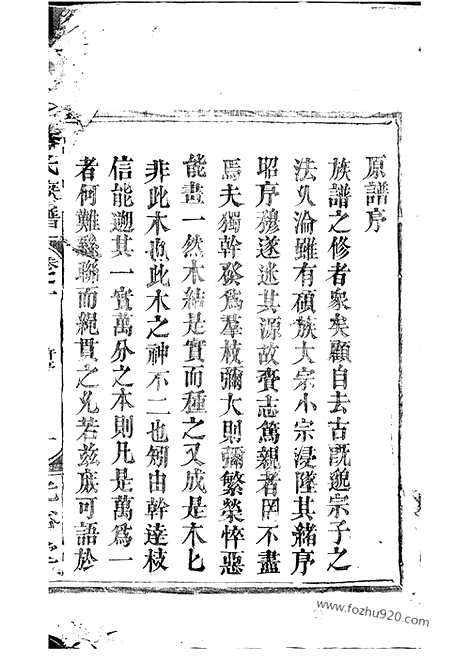 原譜序
族譜之修者衆矣顧自去古既邈宗子之
法久淪雖有碩族大宗小宗浸隳其緒序
昭序穆遂迷其源故賫志篤親者罔不盡
焉夫獨幹發為羣枝彌大則彌繁榮悴惡
能畫一然木結是實而種之又成是木匕
非此木也此木之神不二也矧由幹達枝
信能遡其一實萬分之本則凡是萬為一
者何難聯而繩貫之九若兹庶可語於
氏族譜
卷之一
www.fozhu920.com